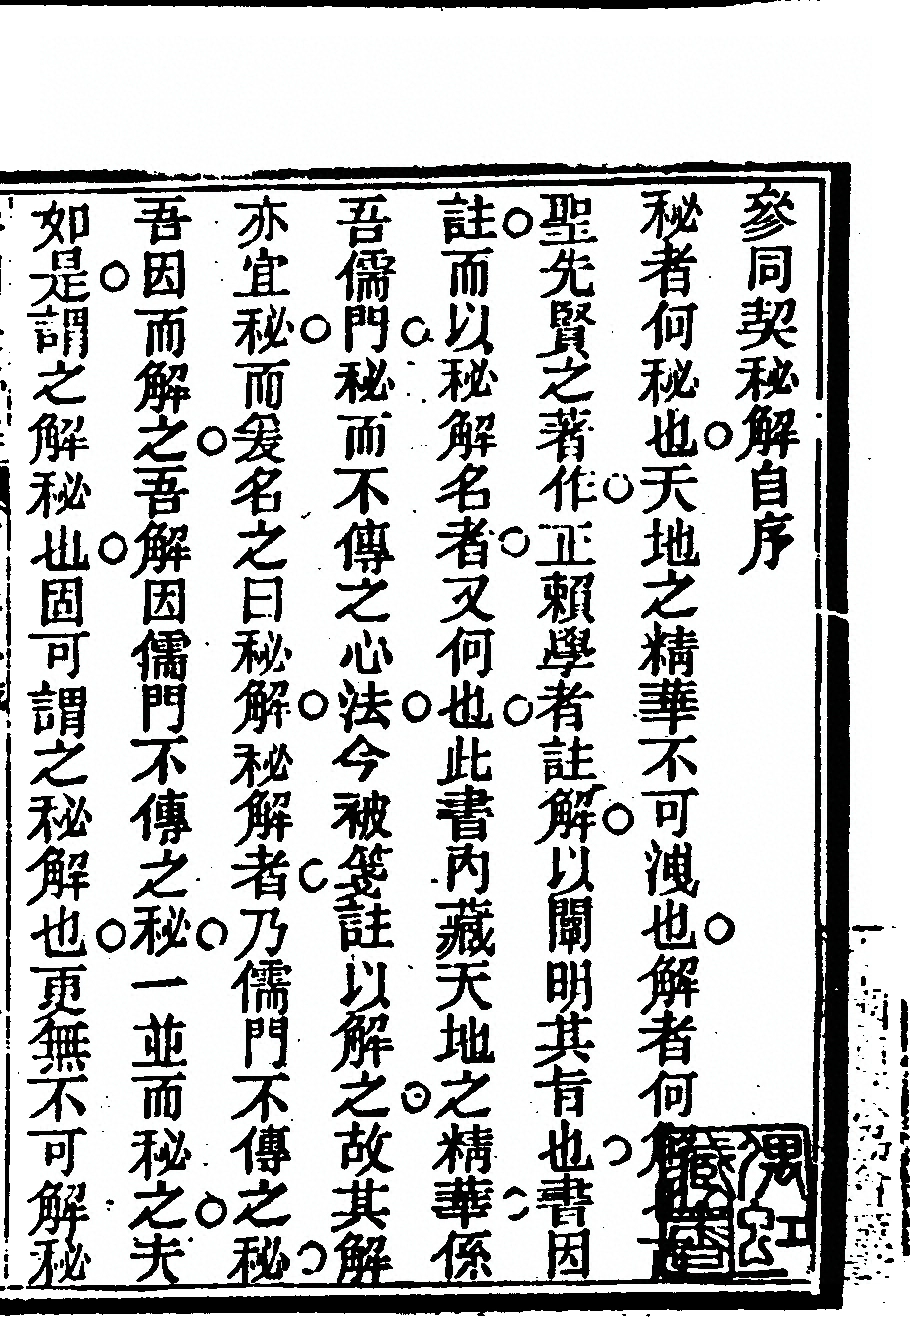 參同契秘解自序
秘者何秘也天地之精華不可洩也解者何解
聖先賢之著作正賴學者註解以闡明其旨也書因
註而以秘解名者又何也此書內藏天地之精華係
吾儒門秘而不傳之心法今被箋註以解之故其解
亦宜秘而爰名之曰秘解秘解者乃儒門不傳之秘
吾因而解之吾解因儒門不傳之秘一並而秘之夫
如是謂之解秘也固可謂之秘解也更無不可解秘